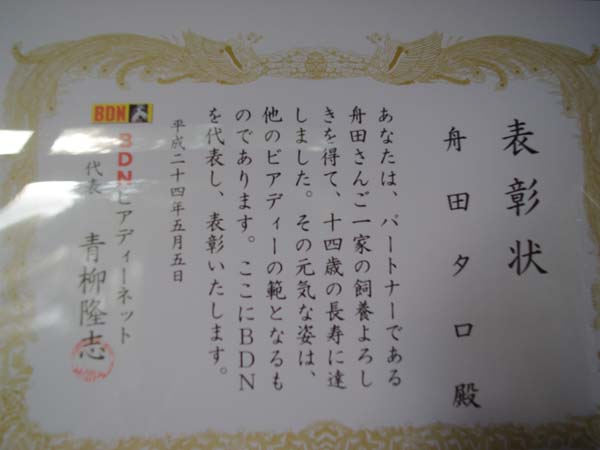 表彰状
舟田タロ殿
あなたは、パートナーである
舟田さんご一家の飼養よろし
きを得て、十四歳の長寿に達
しました。その元気な姿は、
他のビアディーの範となるも
のであります。ここにBDN
を代表し、表彰いたします。
平成二十四年五月五日
BDN
BDNビアディーネット
代表 青柳隆志